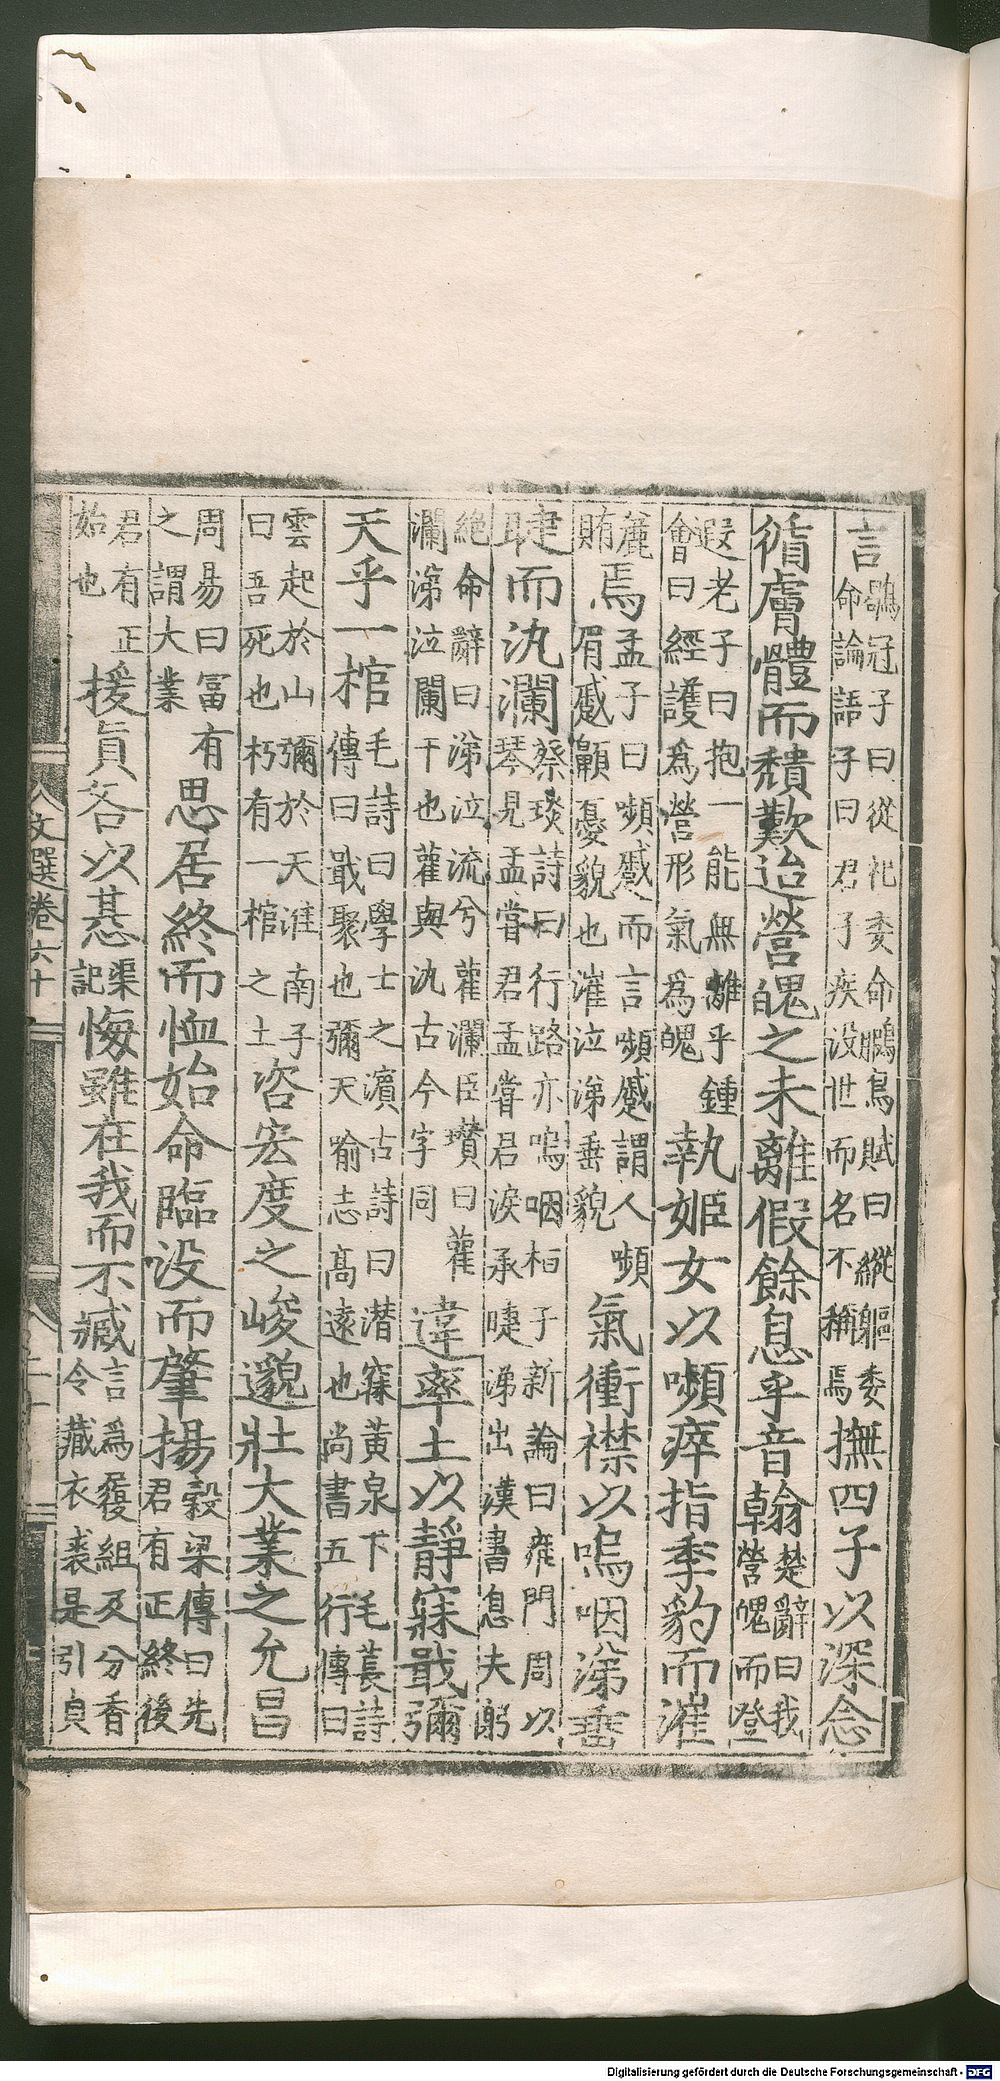 言
鶡冠子曰從祀委命鵩鳥賦曰縱軀委
命論語子曰君子疾没世而名不稱焉
撫四子以深念
循膚體而頹歎迨營魄之未離假餘息乎音翰
楚辭曰我
營魄而登
遐老子曰抱一能無離乎鍾
會曰經護為營形氣為魄
執姬女以嚬瘁指季豹而漼
賄
焉
孟子曰嚬蹙而言嚬蹙謂人嚬
眉蹙顣憂貌也漼泣涕垂貌
氣衝襟以嗚咽涕垂
睫而汍瀾
蔡琰詩曰行路亦嗚咽桓子新論曰雍門周以
琴見孟嘗君孟嘗君淚承睫涕出漢書息夫躬
絶命辭曰涕泣流兮雚瀾臣瓚曰雚
瀾涕泣闌干也雚與汍古今字同
違率土以靜寐戢彌
天乎一棺
毛詩曰學士之濱古詩曰潜寐黄泉下毛萇詩
傳曰戢聚也彌天喻志高遠也尚書五行傳曰
雲起於山彌於天淮南子
曰吾死也朽有一棺之土
咨宏度之峻邈壯大業之允昌
周易曰富有
之謂大業
思居終而恤始命臨没而肇揚
穀梁傳曰先
君有正終後
君有正
始也
援貞咎以惎
渠
記
悔雖在我而不臧
言為履組及分香
令藏衣裘是引貞
文選卷六十
Digitalisierung gefördert durch die Deutsche Forschungsgemeinschaft - DFG